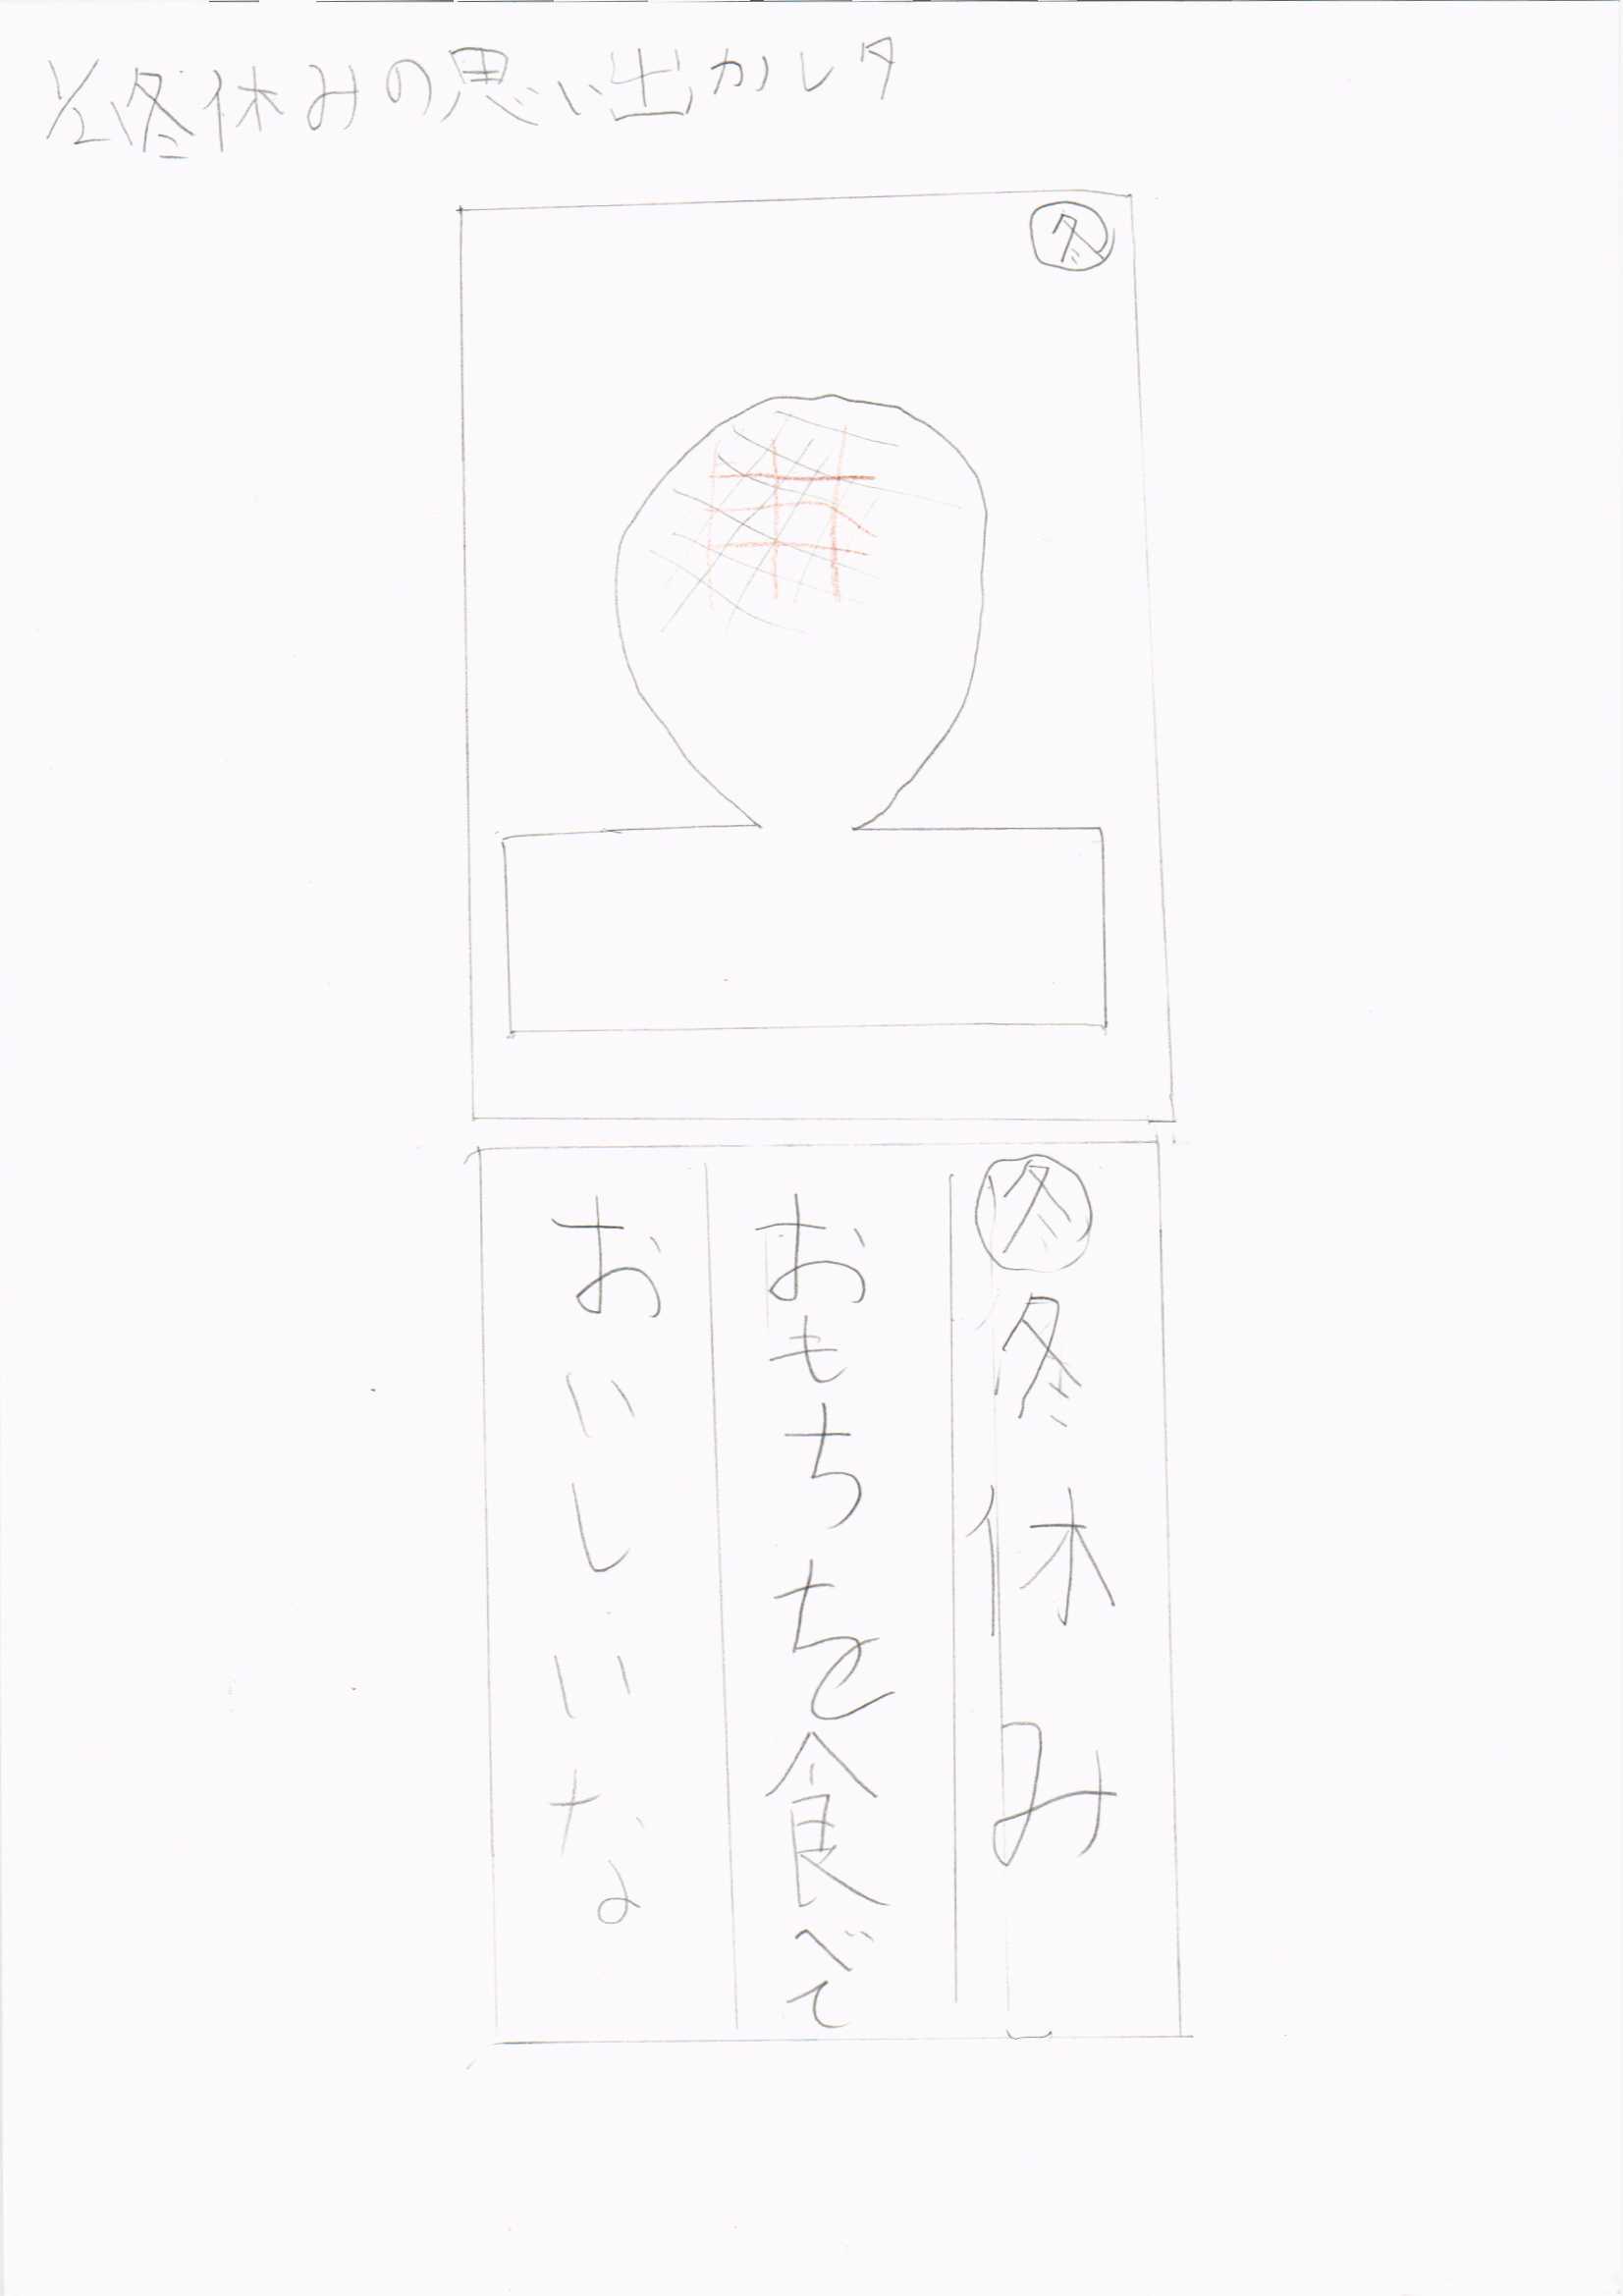 1/21冬休みの思い出カルタ
冬
冬
冬休み
おもちを食べて
おいしいな